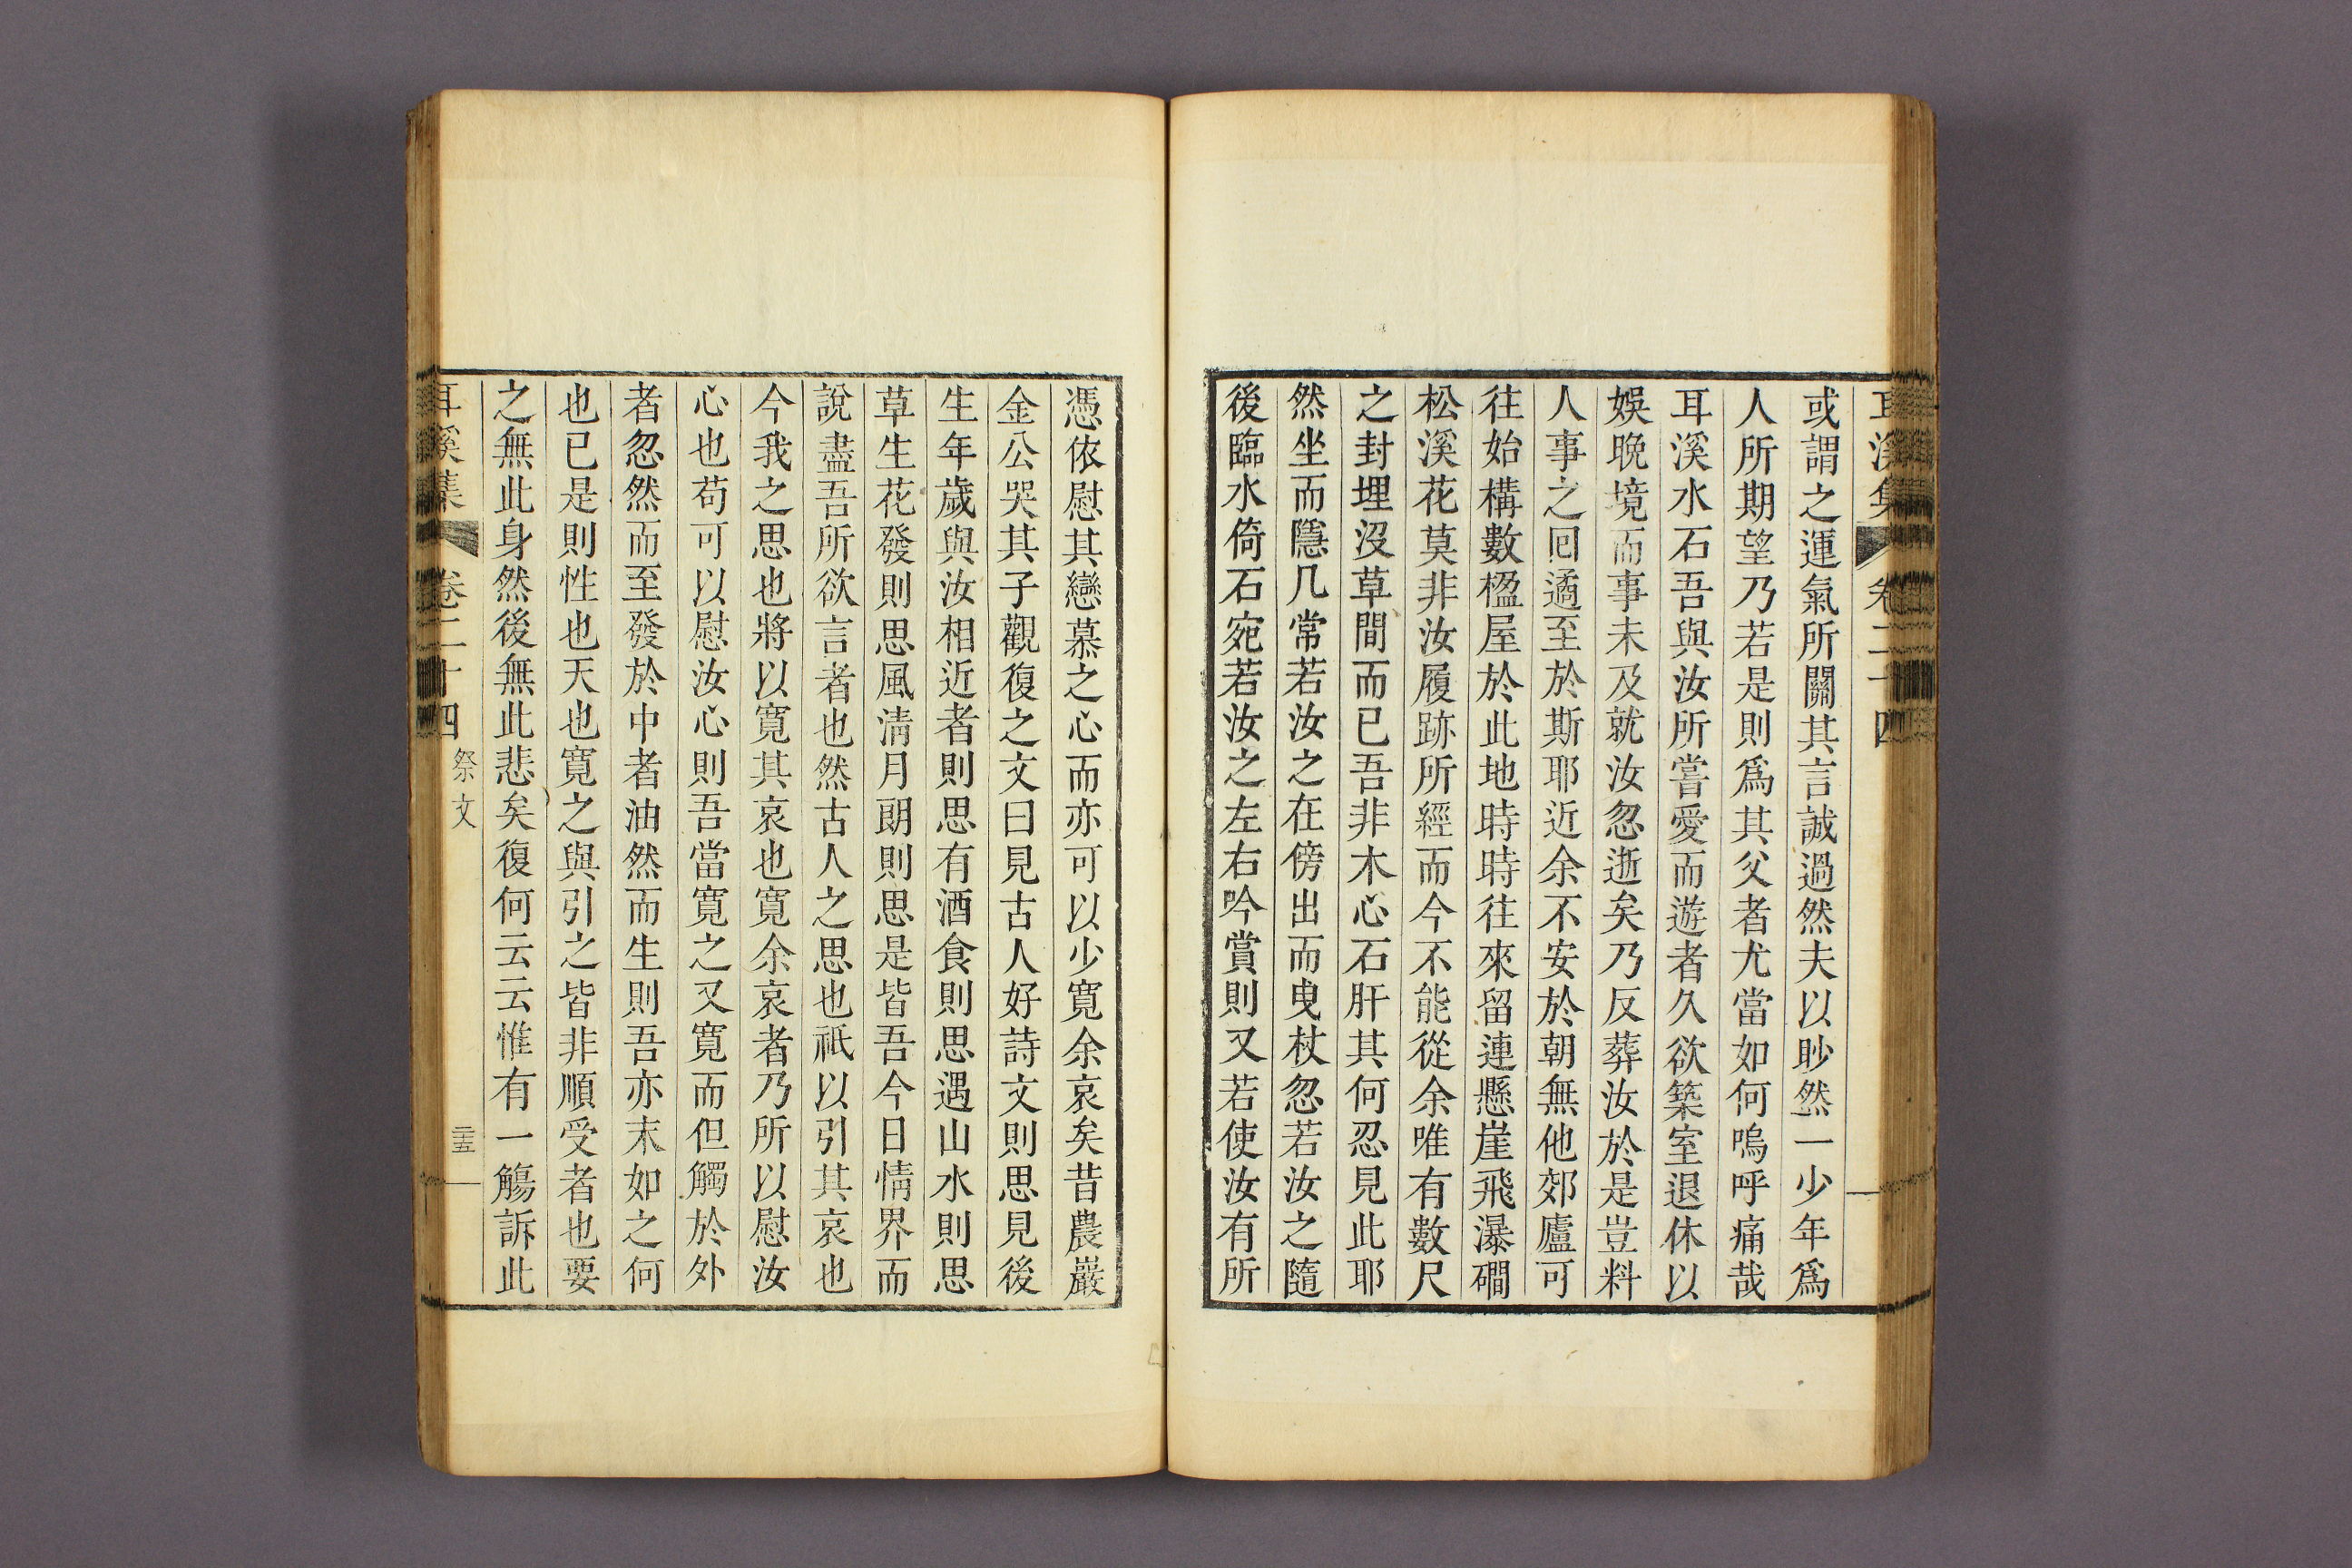 耳溪集 卷二十四
或謂之運氣所關其言誠過然夫以眇然一少年爲
人所期望乃若是則爲其父者尤當如何嗚呼痛哉
耳溪水石吾與汝所嘗愛而遊者久欲築室退休以
娛晚境而事未及就汝忽逝矣乃反葬汝於是豈料
人事之回遹至於斯耶近余不安於朝無他郊廬可
往始構數楹屋於此地時時往來留連懸崖飛瀑磵
松溪花莫非汝履跡所經而今不能從余唯有數尺
之封埋沒草間而已吾非木心石肝其何忍見此耶
然坐而隱几常若汝之在傍出而曳杖忽若汝之隨
後臨水倚石宛若汝之左右吟賞則又若使汝有所
憑依慰其戀慕之心而亦可以少寬余哀矣昔農巖
金公哭其子觀復之文曰見古人好詩文則思見後
生年歲與汝相近者則思有酒食則思遇山水則思
草生花發則思風清月朗則思是皆吾今日情界而
說盡吾所欲言者也然古人之思也祇以引其哀也
今我之思也將以寬其哀也寬余哀者乃所以慰汝
心也苟可以慰汝心則吾當寬之又寬而但觸於外
者忽然而至發於中者油然而生則吾亦末如之何
也已是則性也天也寬之與引之皆非順受者也要
之無此身然後無此悲矣復何云云惟有一觴訴此
耳溪集 卷二十四 祭文 三五